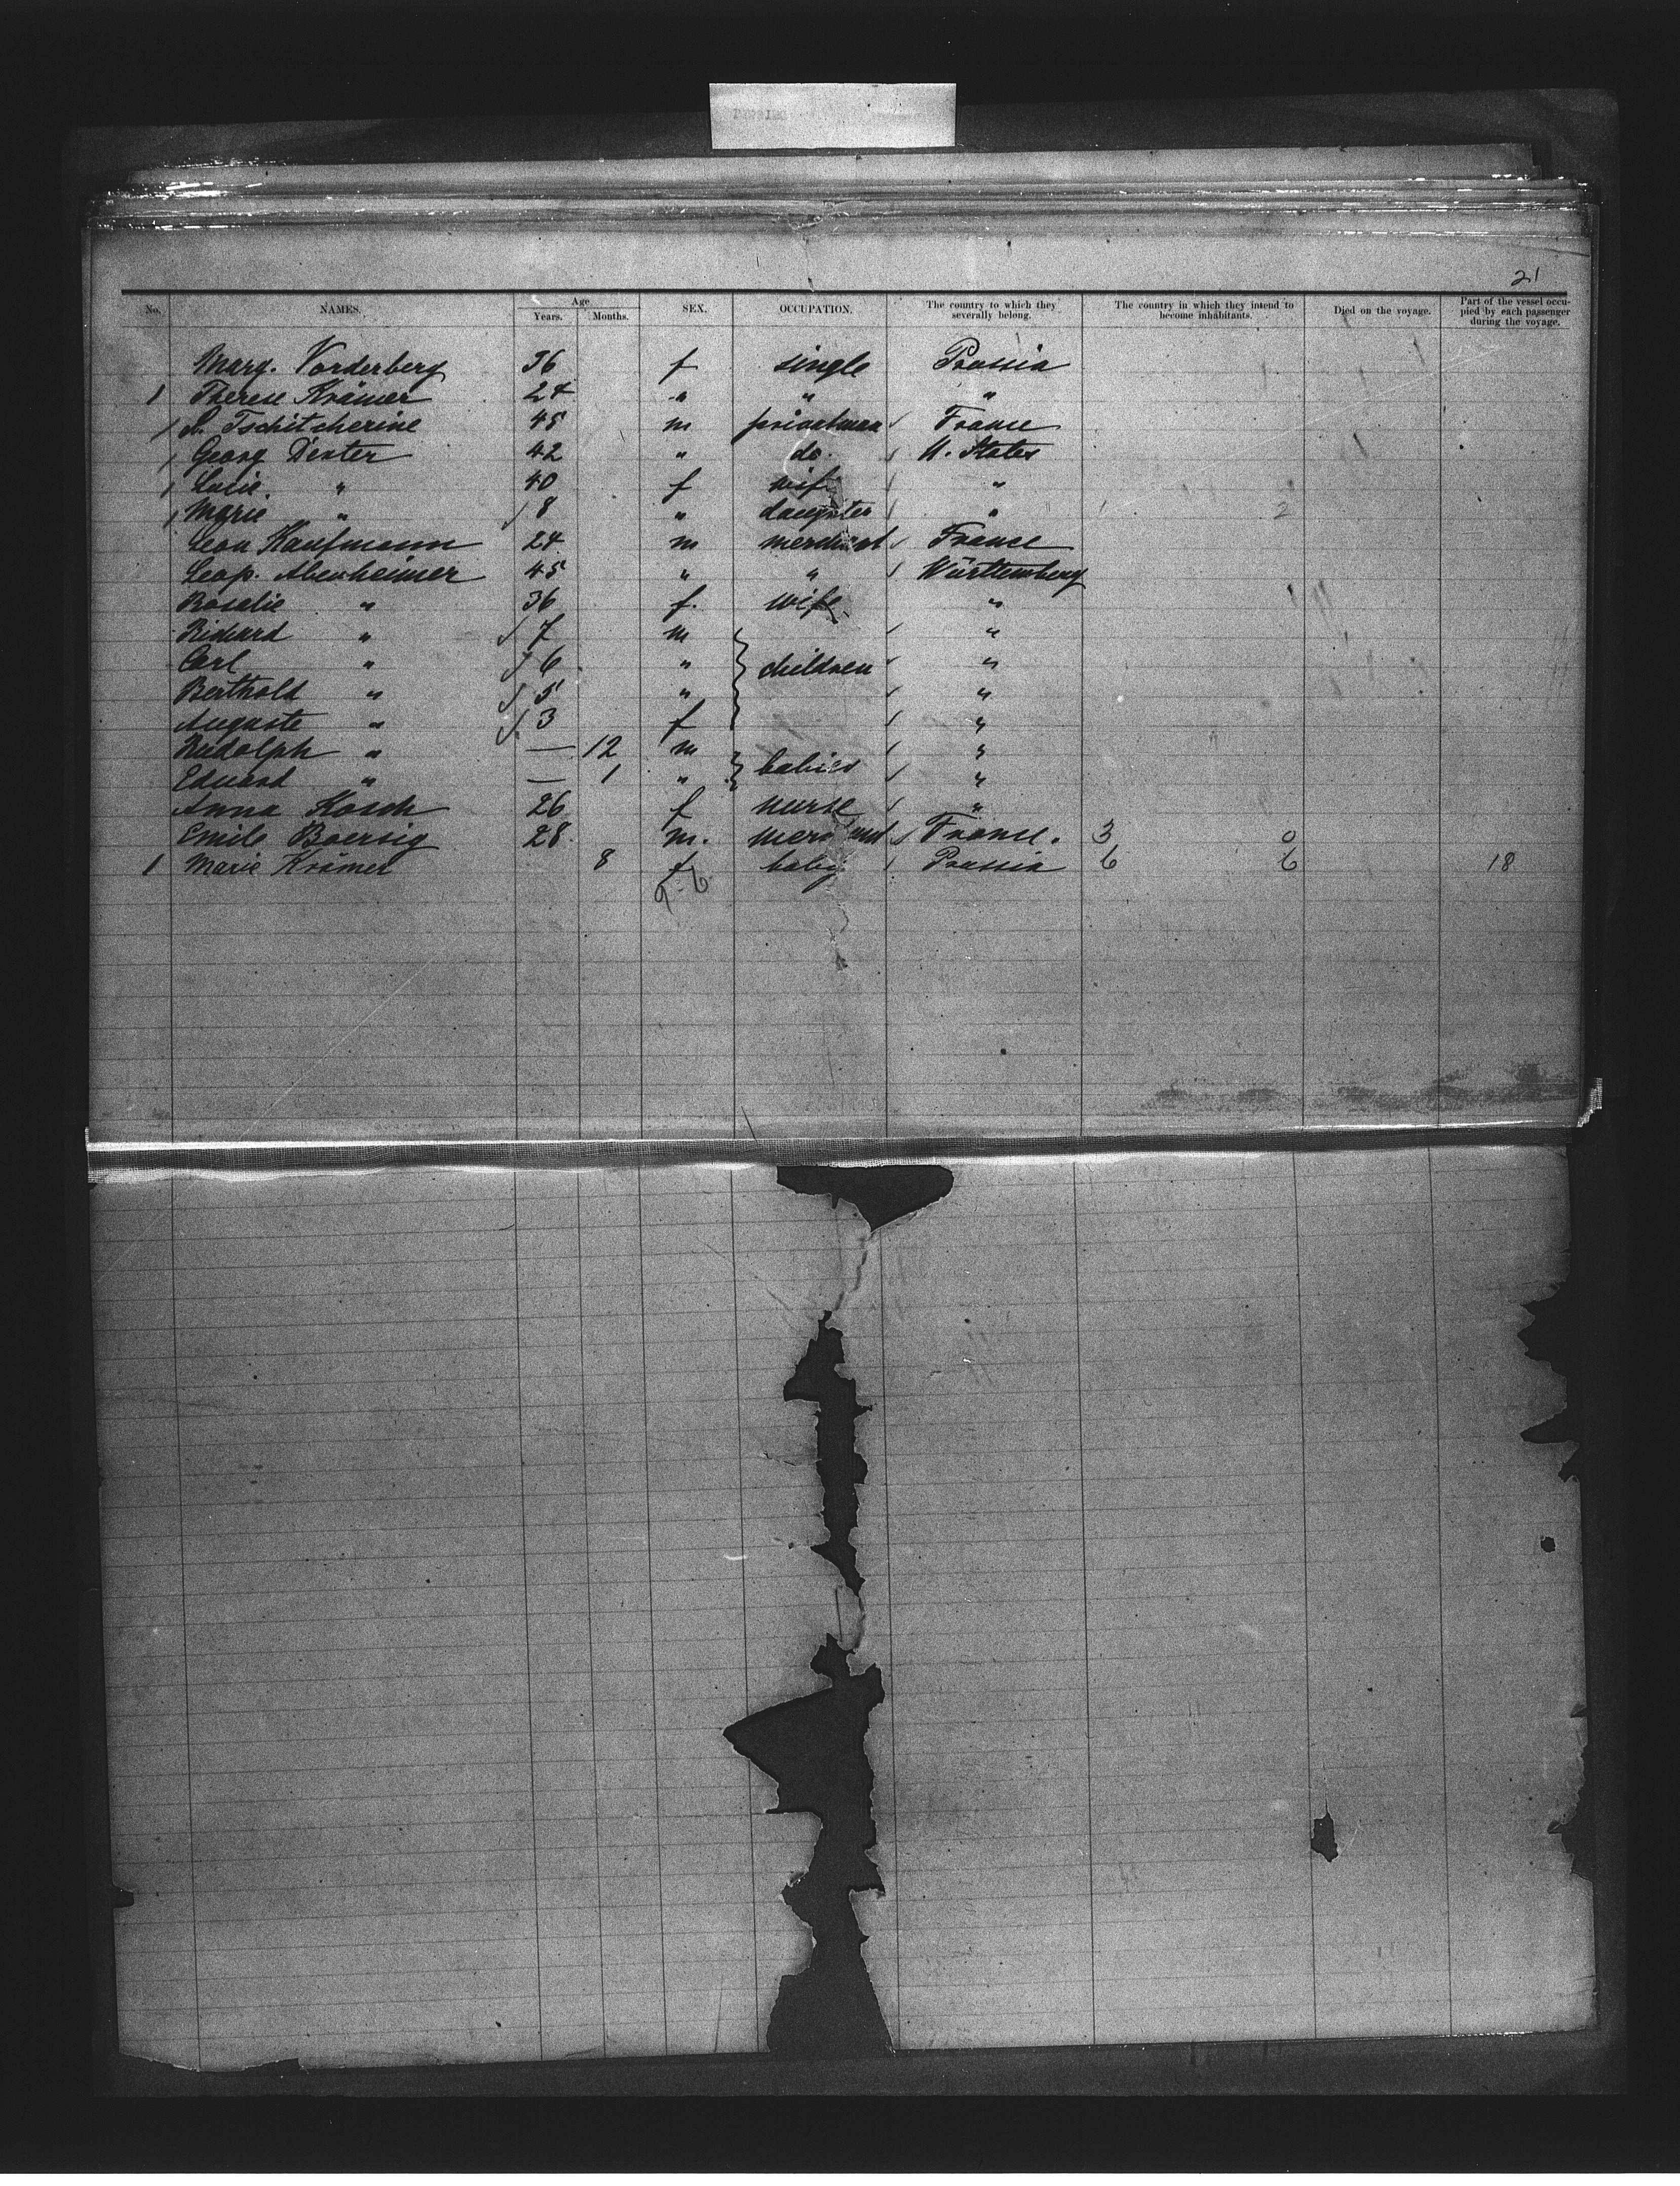 21
No. NAMES. Age Years. Months. SEX. OCCUPATION. The country to which they severally belong. The country in which they intend to become inhabitants. Died on the voyage. Part of the vessel occupied by each passenger during the voyage.
Marg. Vorderberg 36 f single Prussia
1 Therese Krämer 24 " " "
1 Tschitcherine 45 m privatman France
1 Georg Dexter 42 " do. U. States
1 " 40 f wife "
1 Marie " 8 " daughter " 2
Leon Kaufmann 24 m merchant France
Leop. Abenheimer 45 " " Württemberg
Rosalie " 36 f. wife "
Richard " 7 m "
Carl " 6 " children "
Berthold " 5 " "
Auguste " 3 f "
Rudolph " — 12 m babies "
Eduard " — 1 " "
Anna Kosch 26 f nurse "
Emile Boersig 28 m. merchant France. 3 0
1 Marie Krämer 8 f baby Prussia 6 6 18
9-6